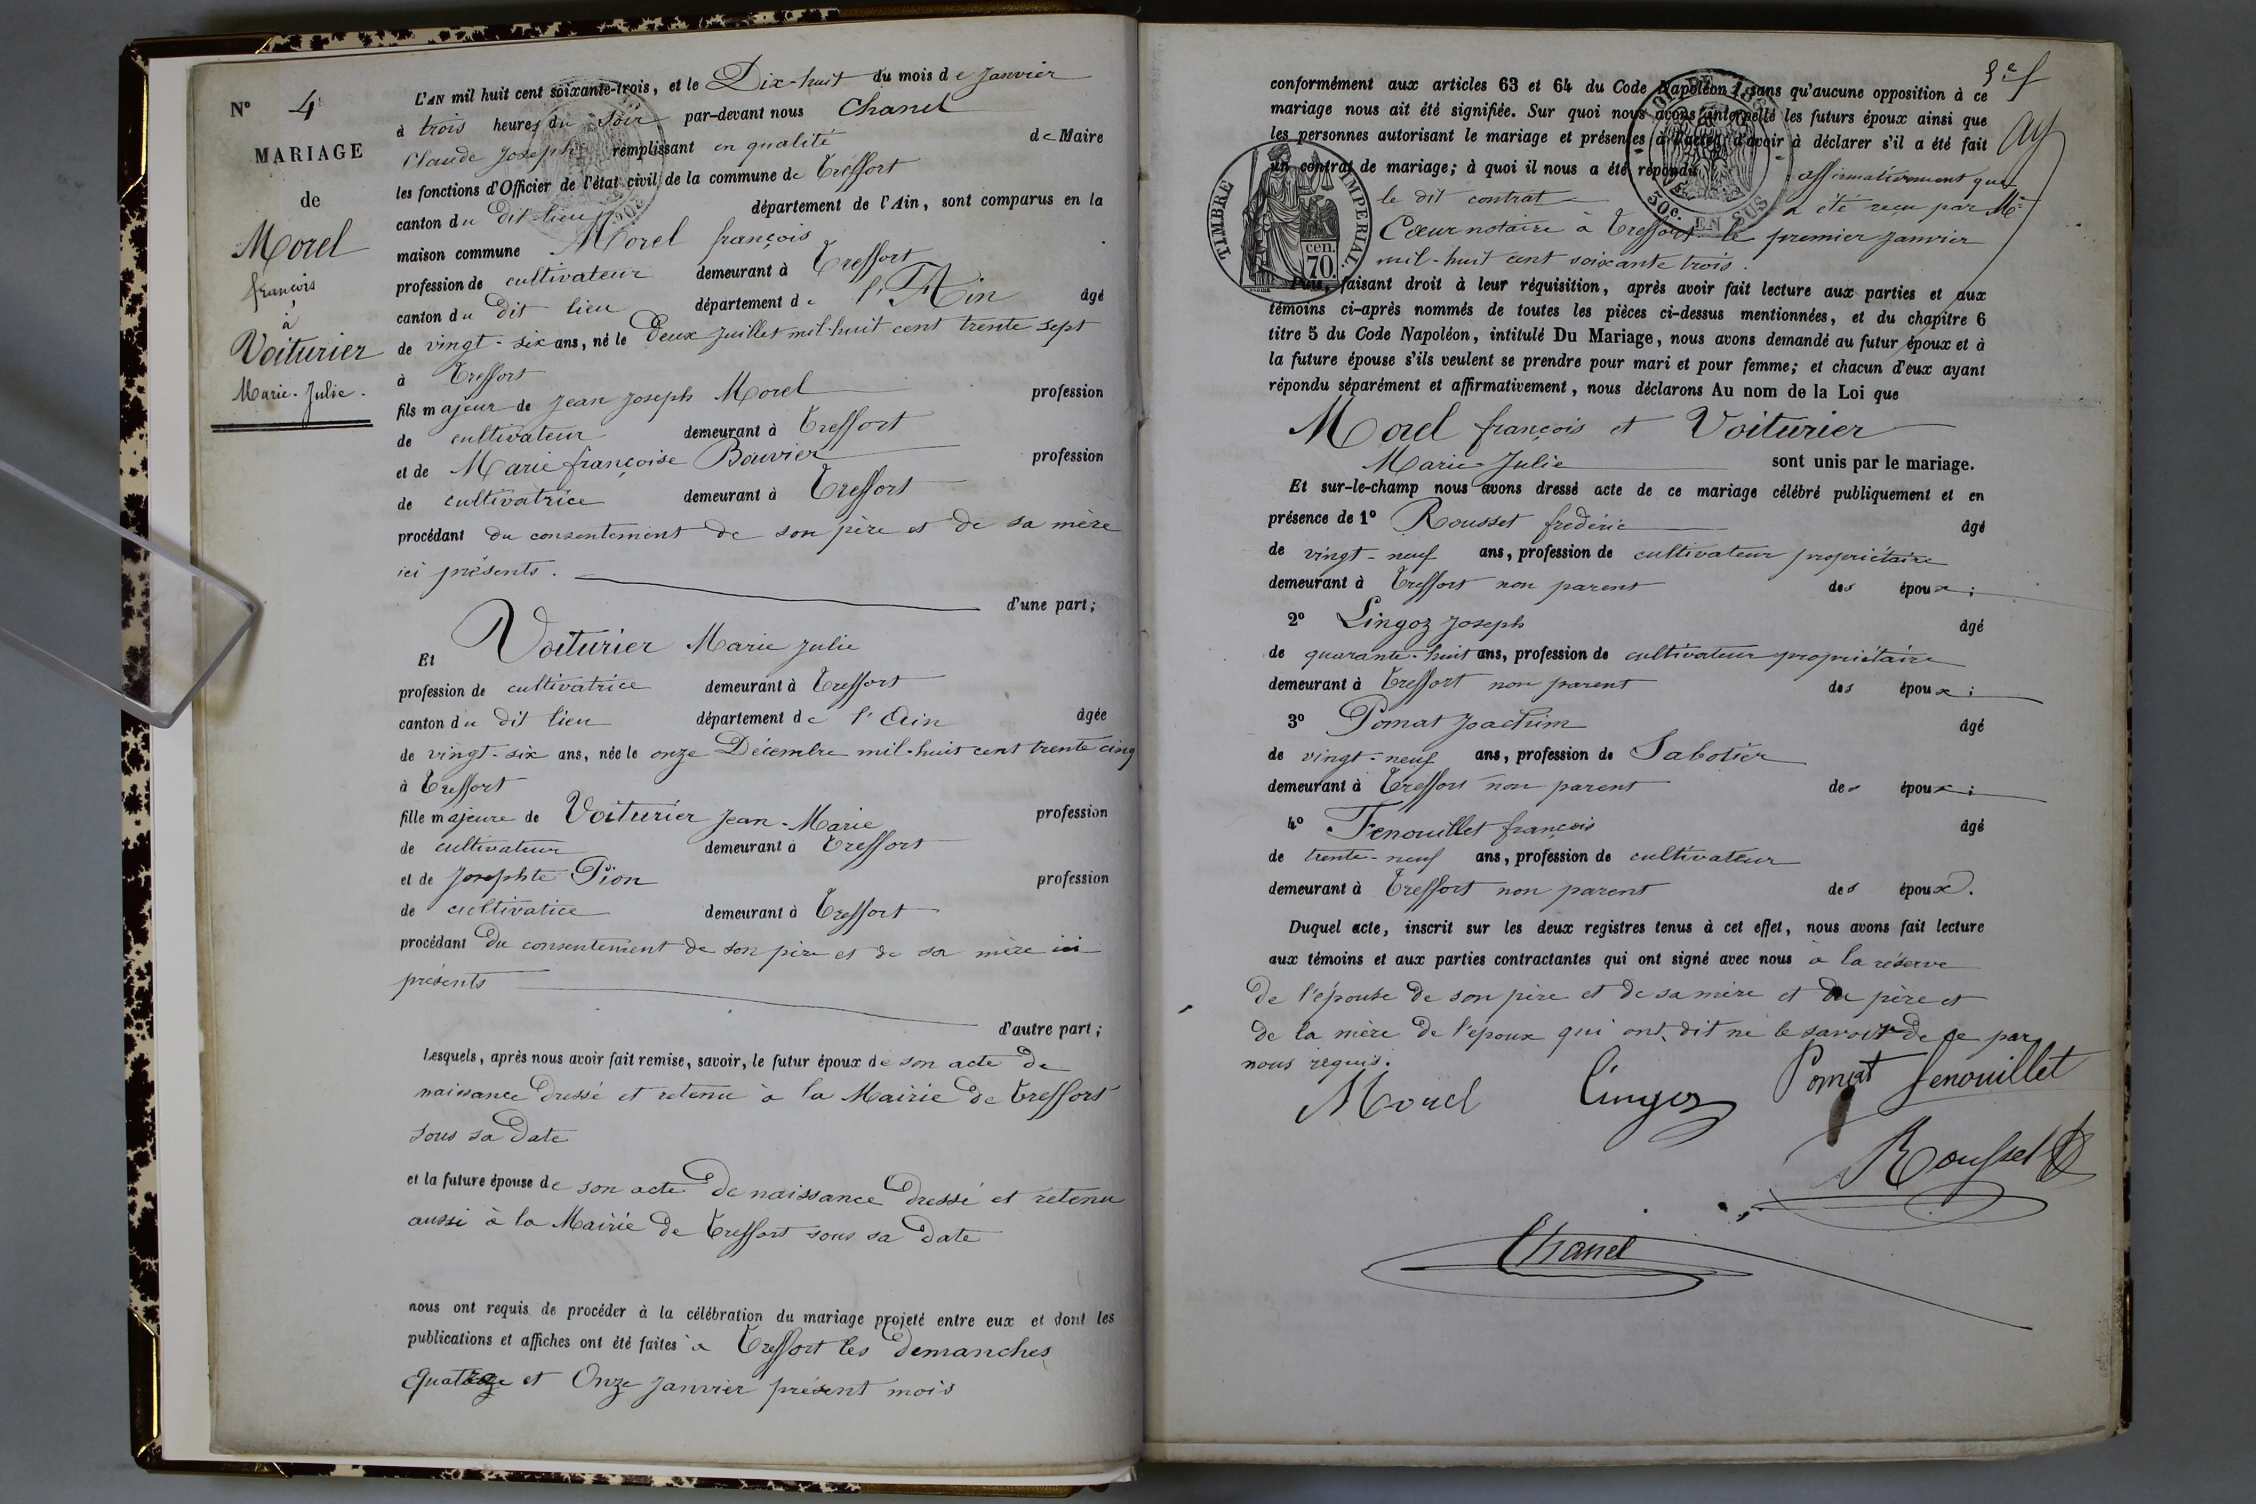 N° 4
MARIAGE
de
Morel
françois
à
Voiturier
Marie-Julie.
L'AN mil huit cent soixante-trois, et le Dix-huit du mois de Janvier
à trois heures du soir par-devant nous Chanel
Claude Joseph remplissant en qualité de Maire
les fonctions d'Officier de l'état civil de la commune de Treffort
canton du dit lieu département de l'Ain, sont comparus en la
maison commune Morel françois
profession de cultivateur demeurant à Treffort
canton du dit lieu département de l'Ain âgé
de vingt-six ans, né le Deux Juillet mil-huit cent trente sept
à Treffort
fils majeur de Jean Joseph Morel profession
de cultivateur demeurant à Treffort
et de Marie françoise Bouvier profession
de cultivatrice demeurant à Treffort
procédant du consentement de son père et de sa mère
ici présents.
d'une part;
Et Voiturier Marie Julie
profession de cultivatrice demeurant à Treffort
canton du dit lieu département de l'Ain âgée
de vingt-six ans, née le onze Décembre mil-huit cent trente cinq
à Treffort
fille majeure de Voiturier Jean-Marie profession
de cultivateur demeurant à Treffort
et de Josephte Pion profession
de cultivatice demeurant à Treffort
procédant du consentement de son père et de sa mère ici
présents
d'autre part;
Lesquels, après nous avoir fait remise, savoir, le futur époux de son acte de
naissance dressé et retenu à la Mairie de Treffort
sous sa date
et la future épouse de son acte de naissance dressé et retenu
aussi à la Mairie de Treffort sous sa date
nous ont requis de procéder à la célébration du mariage projeté entre eux et dont les
publications et affiches ont été faites à Treffort les demanches
quatre et Onze Janvier présent mois
conformément aux articles 63 et 64 du Code Napoléon, sans qu'aucune opposition à ce
mariage nous ait été signifiée. Sur quoi nous avons interpellé les futurs époux ainsi que
les personnes autorisant le mariage et présentes à l'acte, d'avoir à déclarer s'il a été fait
un contrat de mariage; à quoi il nous a été répondu affirmativement que
le dit contrat a été reçu par Me
Cœur notaire à Treffort le premier Janvier
mil-huit cent soixante trois.
TIMBRE IMPERIAL
cen.
70.
30c. EN SUS
Puis, faisant droit à leur réquisition, après avoir fait lecture aux parties et aux
témoins ci-après nommés de toutes les pièces ci-dessus mentionnées, et du chapitre 6
titre 5 du Code Napoléon, intitulé Du Mariage, nous avons demandé au futur époux et à
la future épouse s'ils veulent se prendre pour mari et pour femme; et chacun d'eux ayant
répondu séparément et affirmativement, nous déclarons Au nom de la Loi que
Morel françois et Voiturier
Marie-Julie sont unis par le mariage.
Et sur-le-champ nous avons dressé acte de ce mariage célébré publiquement et en
présence de 1° Rousset frederic âgé
de vingt-neuf ans, profession de cultivateur propriétaire
demeurant à Treffort non parent des époux;
2° Lingoz Joseph âgé
de quarante-huit ans, profession de cultivateur propriétaire
demeurant à Treffort non parent des époux;
3° Pomat Joachim âgé
de vingt-neuf ans, profession de Sabotier
demeurant à Treffort non parent des époux;
4° Fenouillet françois âgé
de trente-neuf ans, profession de cultivateur
demeurant à Treffort non parent des époux.
Duquel acte, inscrit sur les deux registres tenus à cet effet, nous avons fait lecture
aux témoins et aux parties contractantes qui ont signé avec nous à la réserve
de l'épouse de son père et de sa mère et du père et
de la mère de l'époux qui ont dit ne le savoir de ce par
nous requis.
Morel Lingoz Pomat fenouillet
Rousset
Chanel